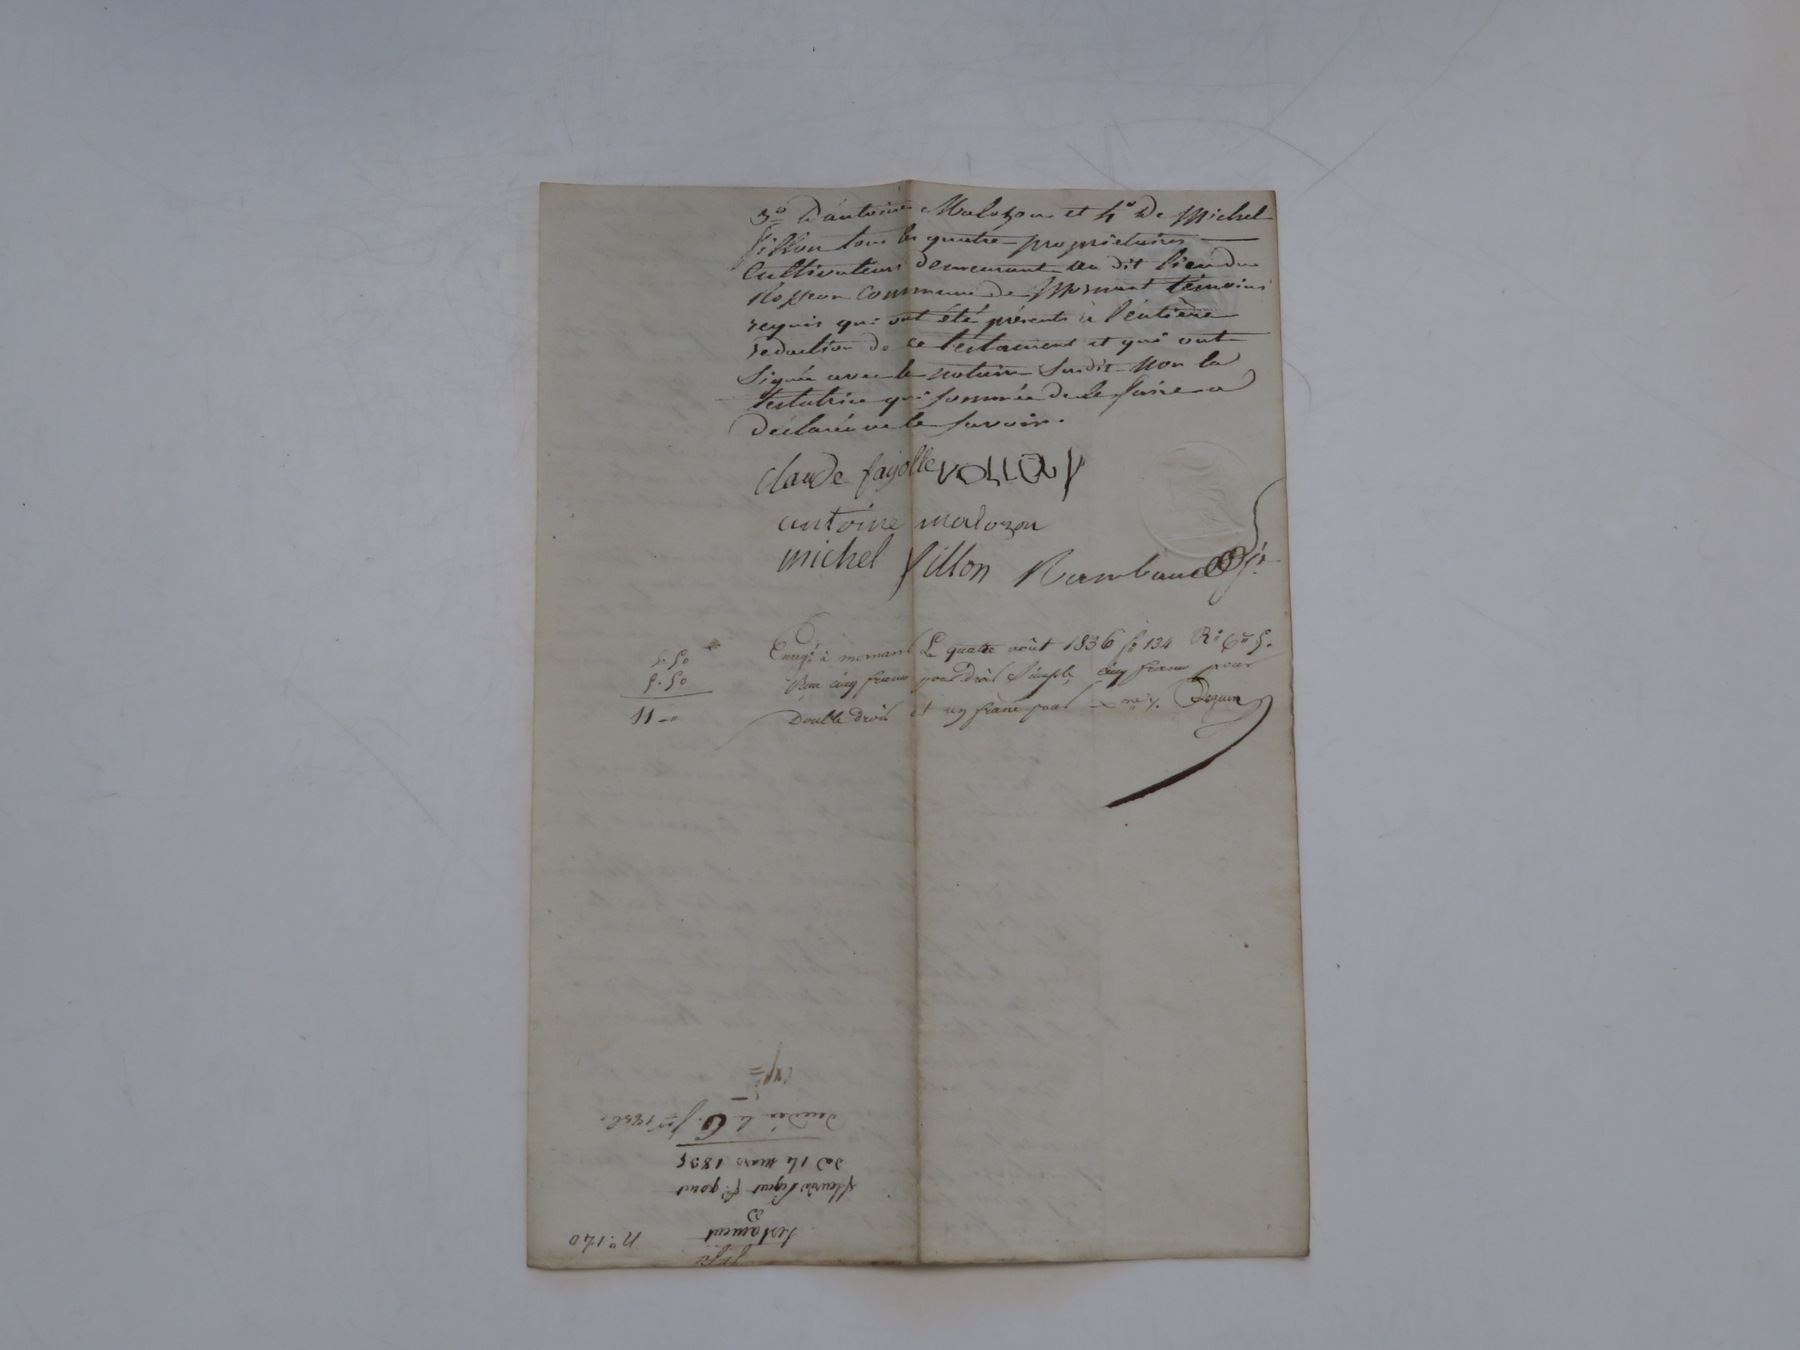 3º d'antoine Malozon et 4º de Michel
fillon tous les quatre propriétaires
Cultivateurs demeurant au dit lieu du
Rosseon Commune de Mornant témoins
requis qui ont été présents à l'entière
rédaction de ce testament et qui ont
Signée avec le notaire Susdit non la
testatrice qui sommée de le faire a
déclaré ne le savoir.
claude fayolle
antoine malozon
michel fillon Rambaud
Enregé à mornant Le quatre août 1836 fº 134 Rº Cse 5.
5.50
Reçu cinq francs pour droit Simple, cinq francs pour
5.50
Double droit et un franc pour
11 -0
décédée le 6 1836.
du 14 mars 1835
testament
de
nº. 140